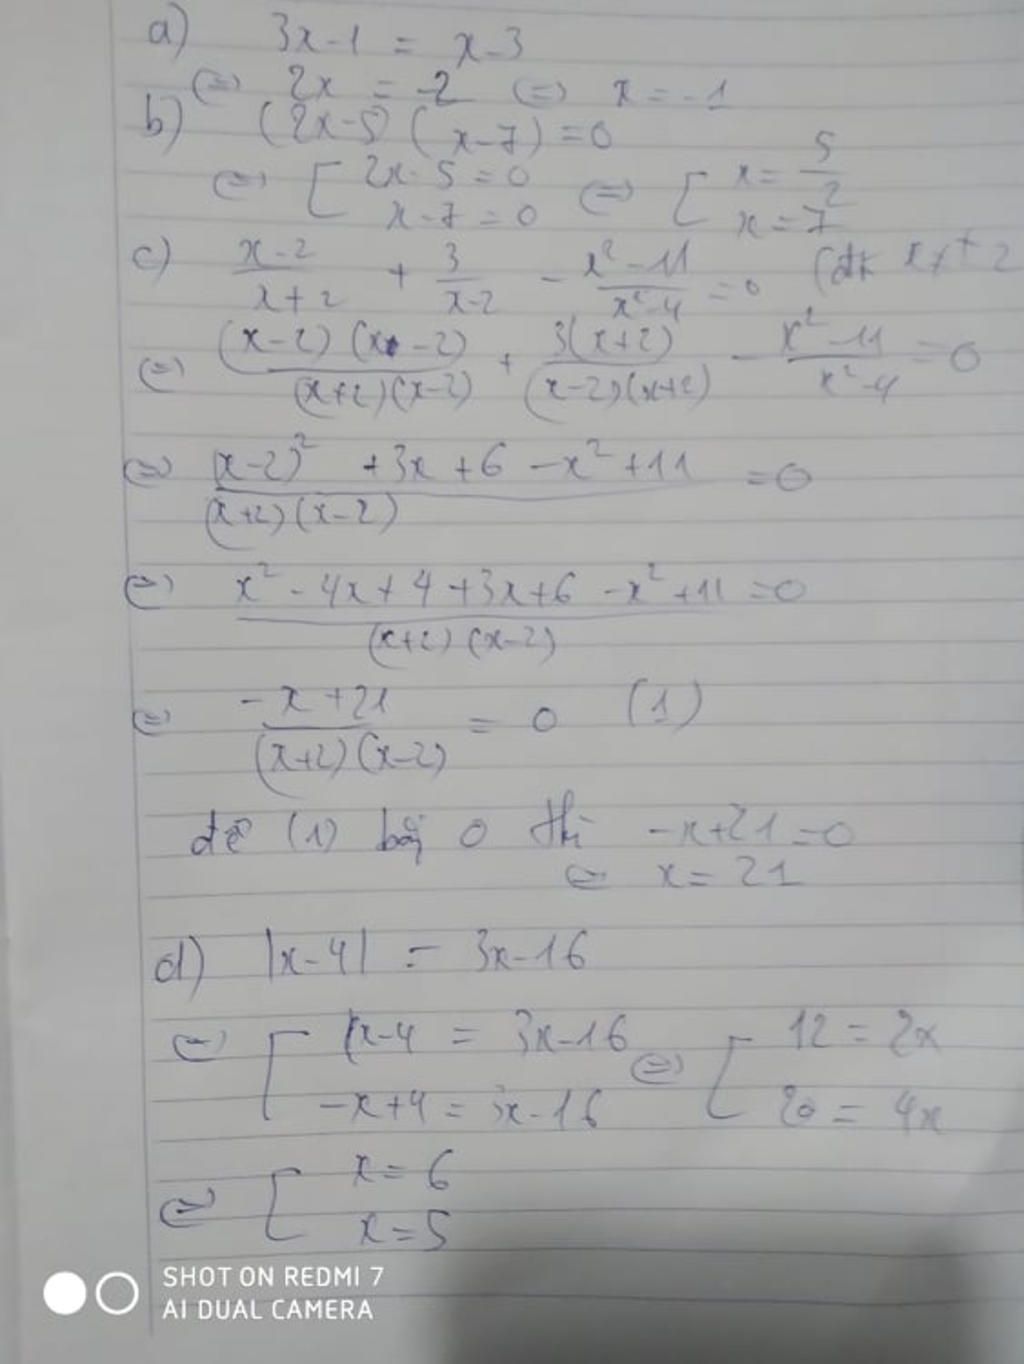 a) 3x-1 = x-3
⇔ 2x = -2 ⇔ x = -1
b) (2x-5)(x-7) = 0
⇔ [ 2x-5 = 0 ⇔ [ x = 5/2
x-7 = 0 x = 7
c) (x-2)/(x+2) + 3/(x-2) - (x²-11)/(x²-4) = 0 (đk x≠±2
⇔ (x-2)(x-2)/(x+2)(x-2) + 3(x+2)/(x-2)(x+2) - (x²-11)/(x²-4) = 0
⇔ (x-2)² +3x+6 -x²+11 / (x+2)(x-2) = 0
⇔ x²-4x+4+3x+6-x²+11 / (x+2)(x-2) = 0
⇔ -x+21 / (x+2)(x-2) = 0 (1)
để (1) bằng 0 thì -x+21=0
⇔ x = 21
d) |x-4| = 3x-16
⇔ [ x-4 = 3x-16 ⇔ [ 12 = 2x
-x+4 = 3x-16 20 = 4x
⇔ [ x = 6
x = 5
SHOT ON REDMI 7
AI DUAL CAMERA